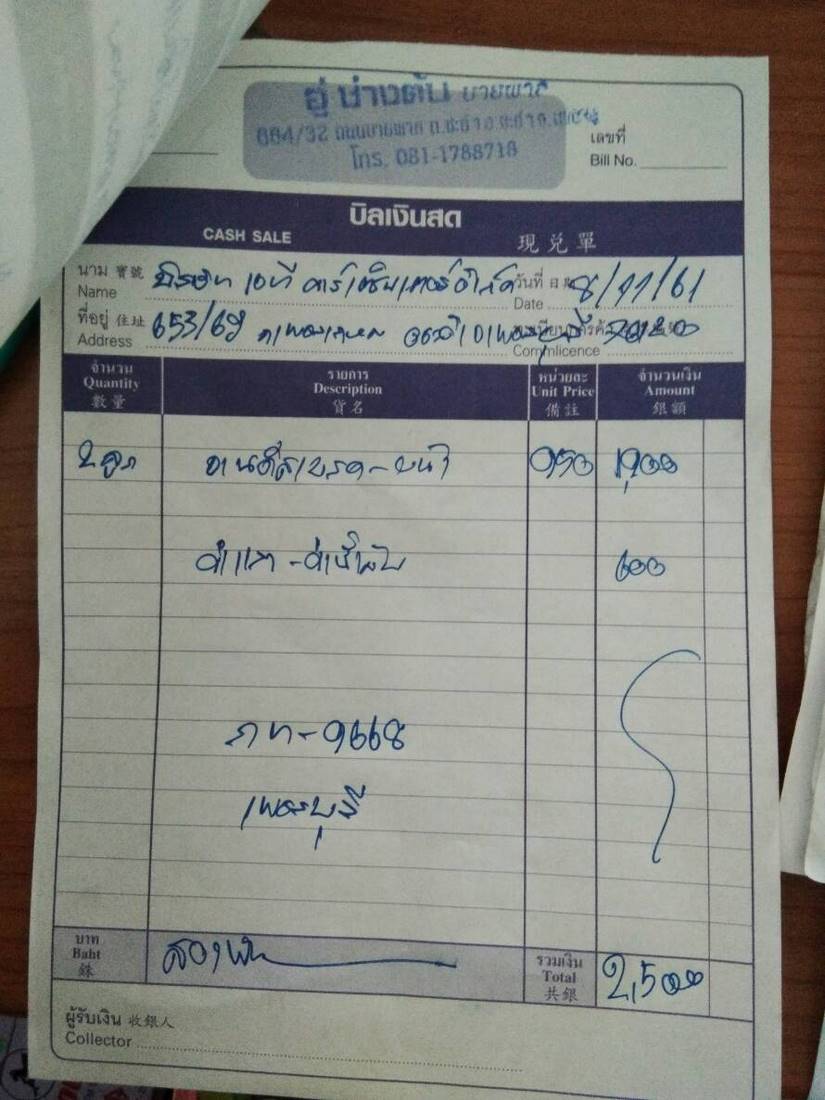 อู่ ช่างต้น บายพาส
664/32 ถนนบายพาส ต.ชะอำ อ.ชะอำ จ.เพชรบุรี
โทร. 081-1788718
เลขที่
Bill No.
บิลเงินสด
CASH SALE 現兌單
นาม 寶號 บริษัท เอที คาร์เซ็นเตอร์ จำกัด วันที่ 8/11/61
Name Date
ที่อยู่ 住址 653/69 ถ.เพชรเกษม
Address Comm.licence
จำนวน รายการ หน่วยละ จำนวนเงิน
Quantity Description Unit Price Amount
數量 貨名 備註 銀額
2 ลูก จานดิสเบรค-หน้า 950 1,900
ค่าแรง - 600
กท-9668
เพชรบุรี
บาท รวมเงิน
Baht สองพัน Total 2,500
銖 共銀
ผู้รับเงิน 收銀人
Collector